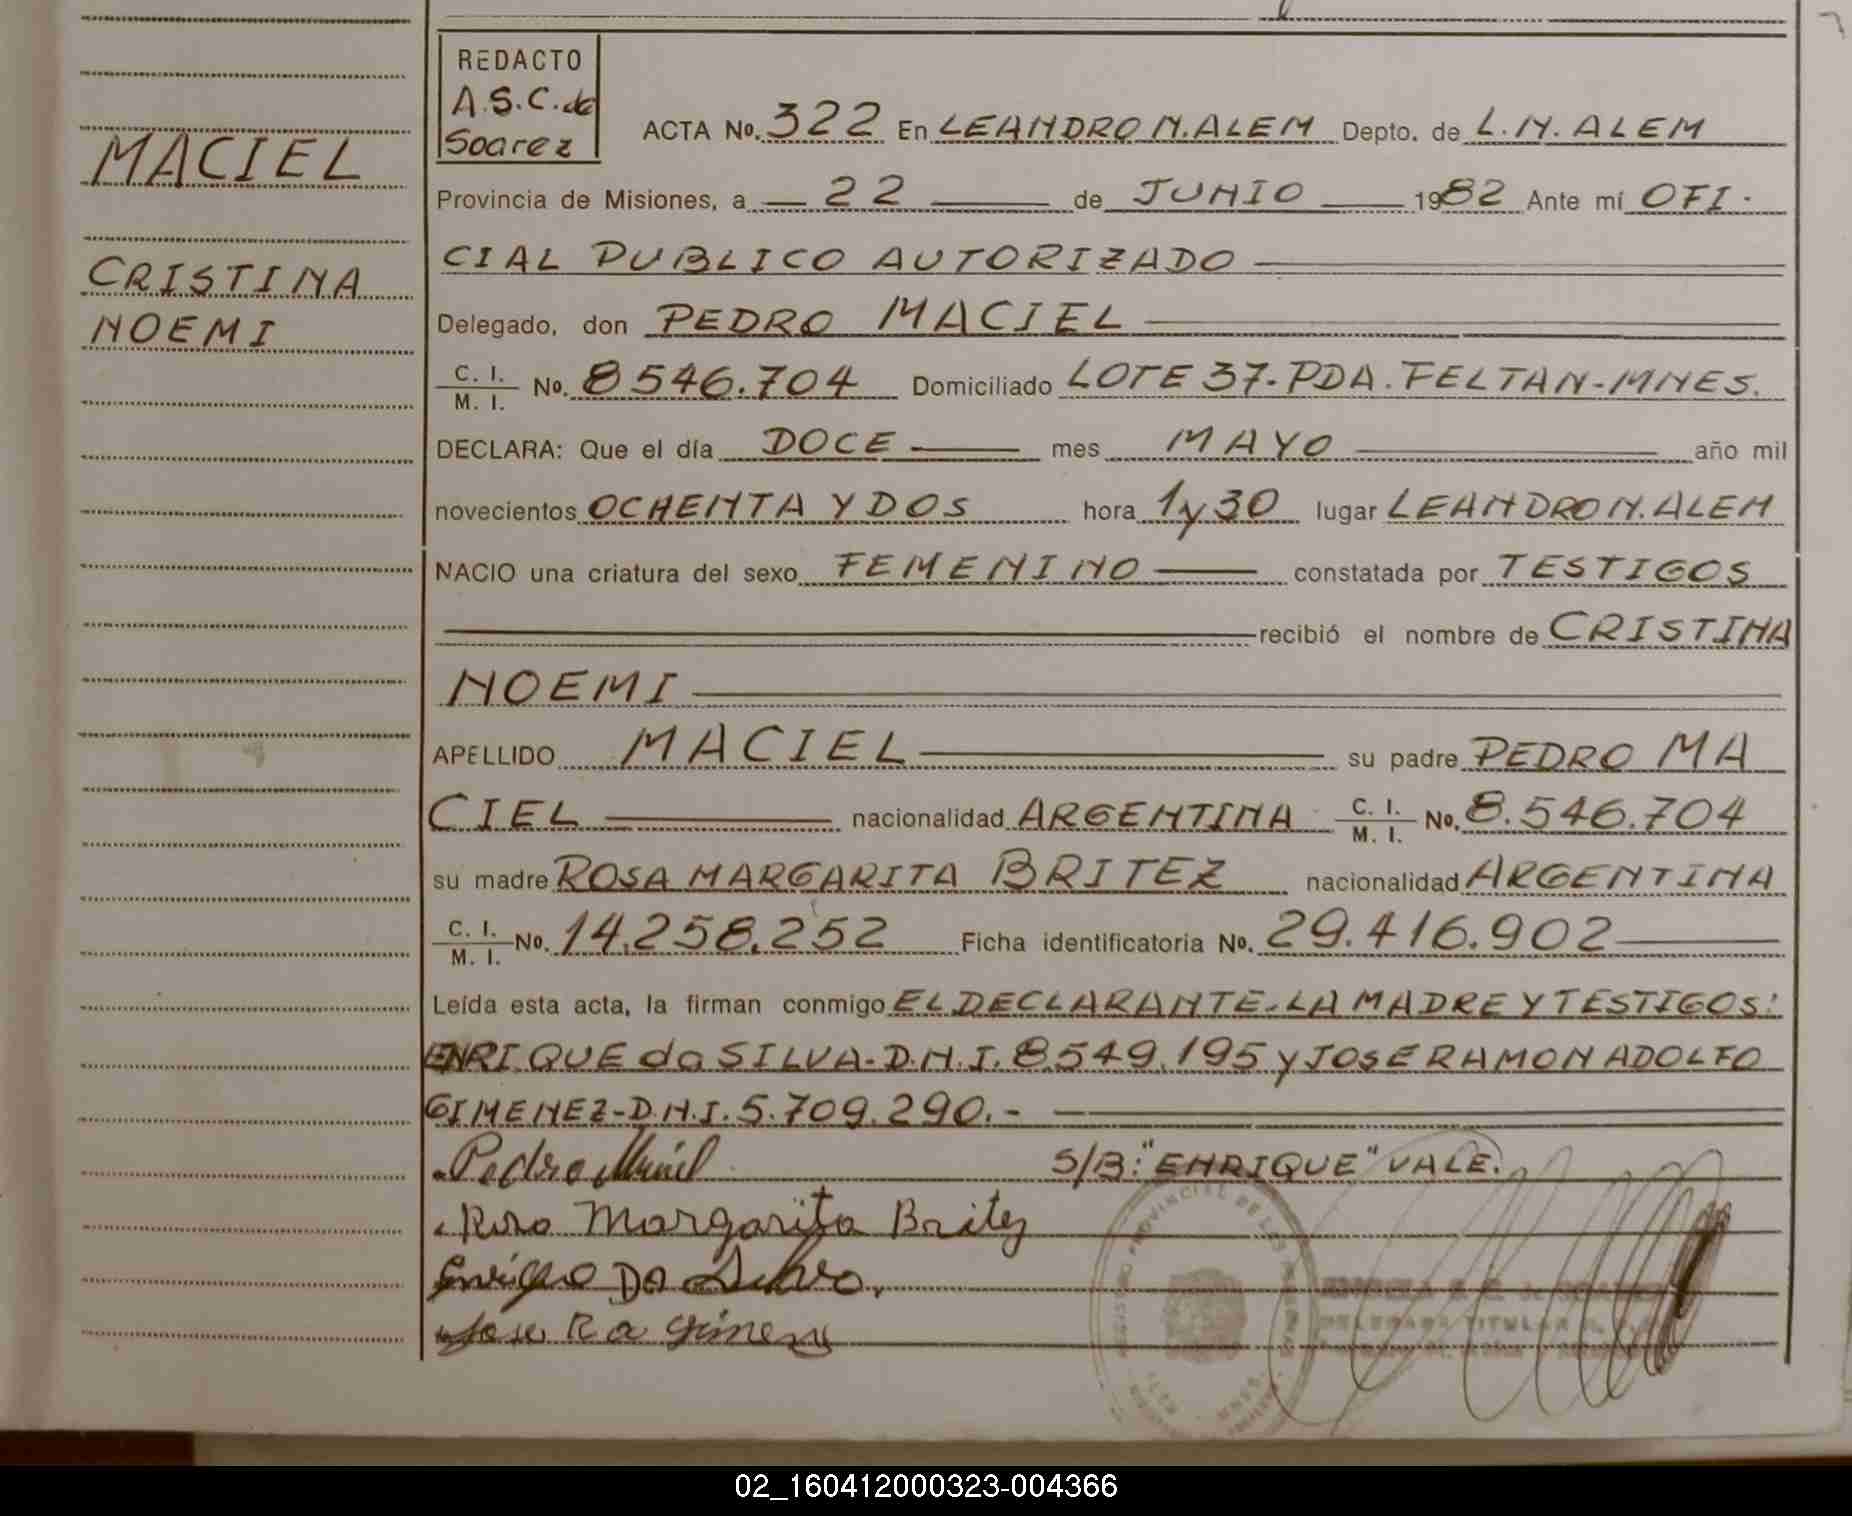 MACIEL
CRISTINA
NOEMI
REDACTO
A.S.C. de
Soarez
ACTA No. 322 En LEANDRO N. ALEM Depto. de L.N. ALEM
Provincia de Misiones, a 22 de JUNIO 1982 Ante mí OFI-
CIAL PUBLICO AUTORIZADO
Delegado, don PEDRO MACIEL
C. I. / M. I. No. 8546.704 Domiciliado LOTE 37-PDA. FELTAN-MNES.
DECLARA: Que el día DOCE mes MAYO año mil
novecientos OCHENTA Y DOS hora 1y30 lugar LEANDRO N. ALEM
NACIO una criatura del sexo FEMENINO constatada por TESTIGOS
recibió el nombre de CRISTINA
NOEMI
APELLIDO MACIEL su padre PEDRO MA
CIEL nacionalidad ARGENTINA C. I. / M. I. No. 8.546.704
su madre ROSA MARGARITA BRITEZ nacionalidad ARGENTINA
C. I. / M. I. No. 14.258.252 Ficha identificatoria No. 29.416.902
Leída esta acta, la firman conmigo EL DECLARANTE-LA MADRE Y TESTIGOS:
ENRIQUE da SILVA-D.N.I. 8.549.195 y JOSE RAMON ADOLFO
GIMENEZ-D.N.I. 5.709.290.-
Pedro Maciel S/B: "ENRIQUE" VALE.
Rosa Margarita Britez
Enrique Da Silva
Jose Ra Gimenez
REGISTRO PROVINCIAL DE LAS
DELEGADA TITULAR
02_160412000323-004366